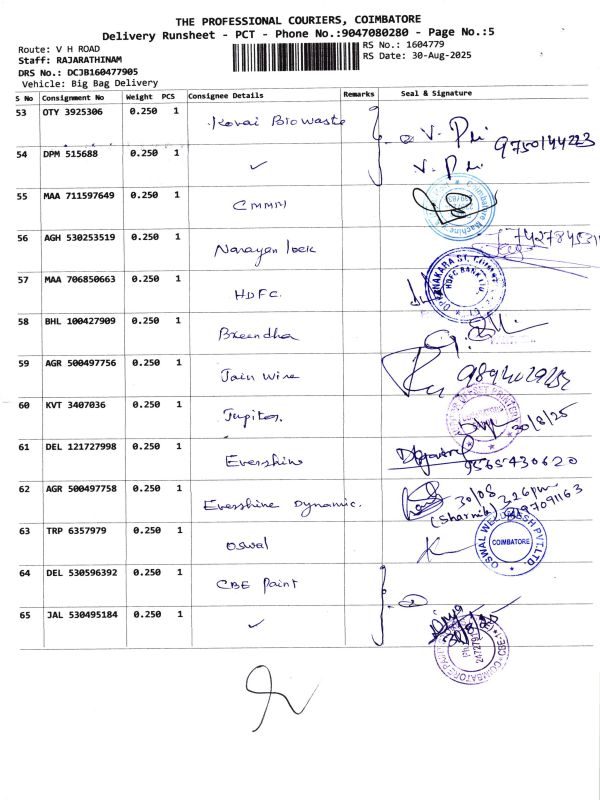 THE PROFESSIONAL COURIERS, COIMBATORE
Delivery Runsheet - PCT - Phone No.:9047080280 - Page No.:5
Route: V H ROAD
RS No.: 1604779
Staff: RAJARATHINAM
RS Date: 30-Aug-2025
DRS No.: DCJB160477905
Vehicle: Big Bag Delivery
S No Consignment No Weight PCS Consignee Details Remarks Seal & Signature
53 OTY 3925306 0.250 1 Kovai BioWaste V. Pri 9750144223
54 DPM 515688 0.250 1 ✓ V. Pri
55 MAA 711597649 0.250 1 CMMH
56 AGH 530253519 0.250 1 Narayan lock
57 MAA 706850663 0.250 1 HDFC. HDFC BANK LTD.
58 BHL 100427909 0.250 1
59 AGR 500497756 0.250 1 Jain Wire
60 KVT 3407036 0.250 1 Jupiter. 30/8/25
61 DEL 121727998 0.250 1 Evershine 9565430620
62 AGR 500497758 0.250 1 Evershine Dynamic. 30/08 3.26pm
63 TRP 6357979 0.250 1 Oswal OSWAL PVT.LTD. COIMBATORE
64 DEL 530596392 0.250 1 CBE Paint
65 JAL 530495184 0.250 1 ✓